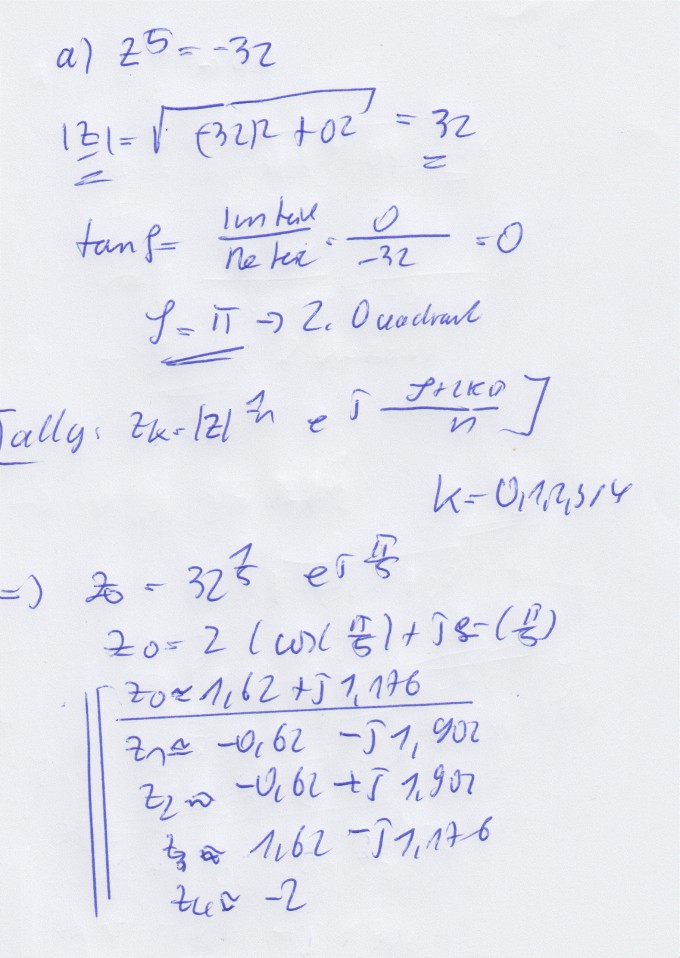 a) z^5 = -32
|z| = √((-32)2 + 02) = 32
tan φ = Imteil / Re teil = 0 / -32 = 0
φ = π → 2. Quadrant
zk = |z|^1/n e^j (φ+2kπ)/n ]
k = 0,1,2,3,4
=> z0 = 32^1/5 e^j π/5
z0 = 2 (cos(π/5) + j s (π/5)
z0 ≈ 1,62 + j 1,176
z1 ≈ -0,62 - j 1,902
z2 ≈ -0,62 + j 1,902
z3 ≈ 1,62 - j 1,176
z4 ≈ -2